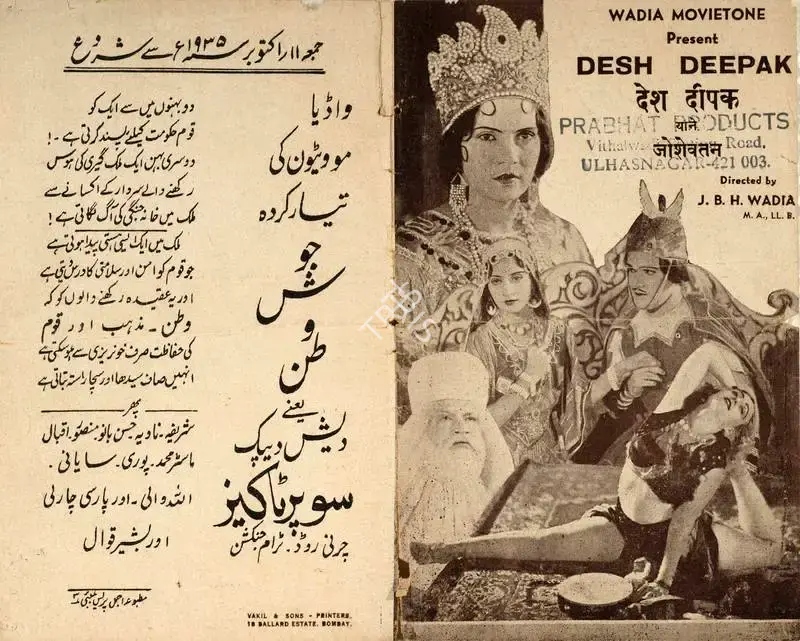 جمعہ ۱۱ اکتوبر سنہ ۱۹۳۵ء سے شروع
واڈیا
موویٹون کی
تیار کردہ
جوش
و
طن
یعنے
دیش دیپک
سوپر ٹاکیز
چرنی روڈ۔ ٹرام جنکشن
دو بہنوں میں سے ایک کو
قوم حکومت کیلئے پسند کرتی ہے۔!
دوسری بہن ایک ملک گیری کی ہوس
رکھنے والے سردار کے اکسانے سے
ملک میں خانہ جنگی کی آگ لگاتی ہے!
ملک میں ایک ایسی ہستی پیدا ہوتی ہے
جو قوم کو امن اور سلامتی کا درس دیتی ہے
اور یہ عقیدہ رکھنے والوں کو کہ
وطن۔ مذہب اور قوم
کی حفاظت صرف خونریزی سے ہو سکتی ہے
انہیں صاف سیدھا اور سچا راستہ بتاتی ہے
پھر
شریفہ۔ نادیہ حسن بانو۔ منصور۔ اقبال
ماسٹر محمد۔ پوری۔ سایانی۔
اللہ والی۔ اور پارسی چارلی
اور بشیر قوال
VAKIL & SONS - PRINTERS,
18 BALLARD ESTATE, BOMBAY.
WADIA MOVIETONE
Present
DESH DEEPAK
देश दीपक
याने
जोशेवतन
PRABHAT PRODUCTS
Road,
ULHASNAGAR-421 003.
Directed by
J. B. H. WADIA
M. A., LL. B.